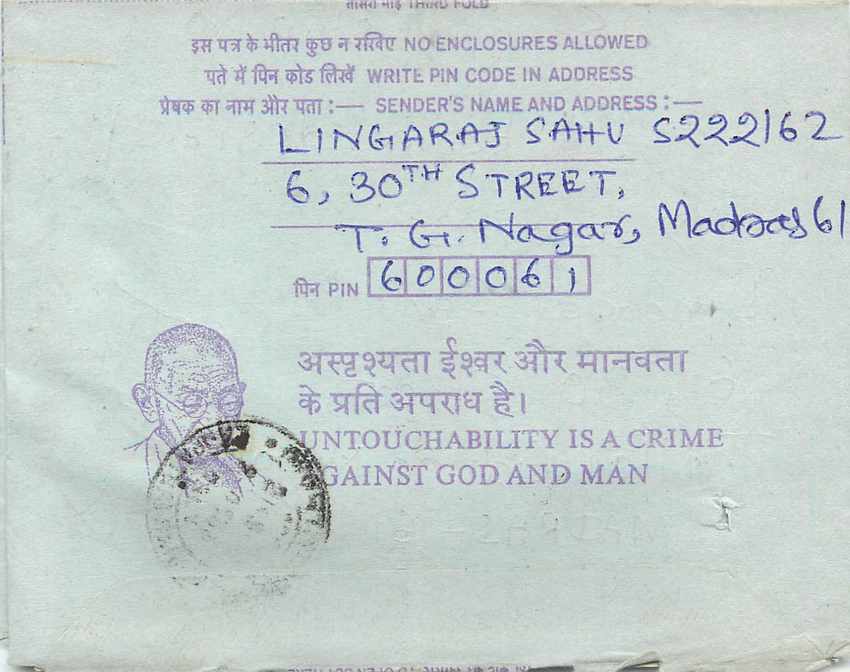 तीसरा मोड़ THIRD FOLD
इस पत्र के भीतर कुछ न रखिए NO ENCLOSURES ALLOWED
पते में पिन कोड लिखें WRITE PIN CODE IN ADDRESS
प्रेषक का नाम और पता :— SENDER'S NAME AND ADDRESS :—
LINGARAJ SAHU S222162
6, 30TH STREET,
T. G. Nagar, Madras 61
पिन PIN 600061
अस्पृश्यता ईश्वर और मानवता
के प्रति अपराध है।
UNTOUCHABILITY IS A CRIME
AGAINST GOD AND MAN